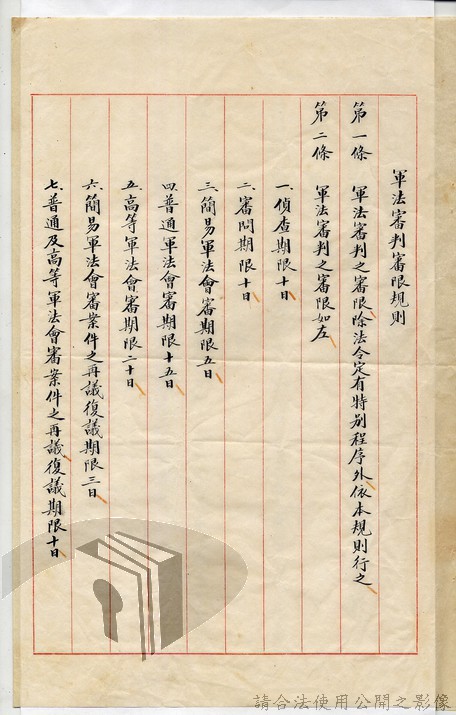 軍法審判審限規則
第一條　軍法審判之審限除法令定有特別程序外依本規則行之
第二條　軍法審判之審限如左
一、偵查期限十日
二、審問期限十日
三、簡易軍法會審期限五日
四、普通軍法會審期限十五日
五、高等軍法會審期限二十日
六、簡易軍法會審案件之再議復議期限三日
七、普通及高等軍法會審案件之再議復議期限十日
請合法使用公開之影像